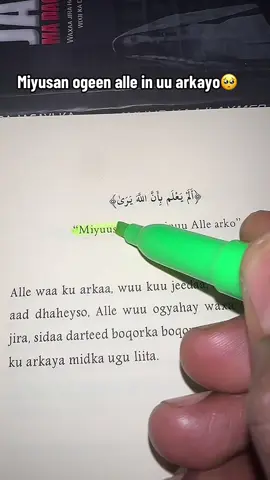 JA
WAXAA JIRA
Miyusan ogeen alle in uu arkayo🥺
﴿أَلَمْ يَعْلَم بِأَنَّ اللَّهَ يَرَىٰ﴾
“Miyuus uu Alle arko”
Alle waa ku arkaa, wuu kuu jeedaa,
aad dhaheyso, Alle wuu ogyahay waxa
jira, sidaa darteed boqorka
ku arkaya midka ugu liita.